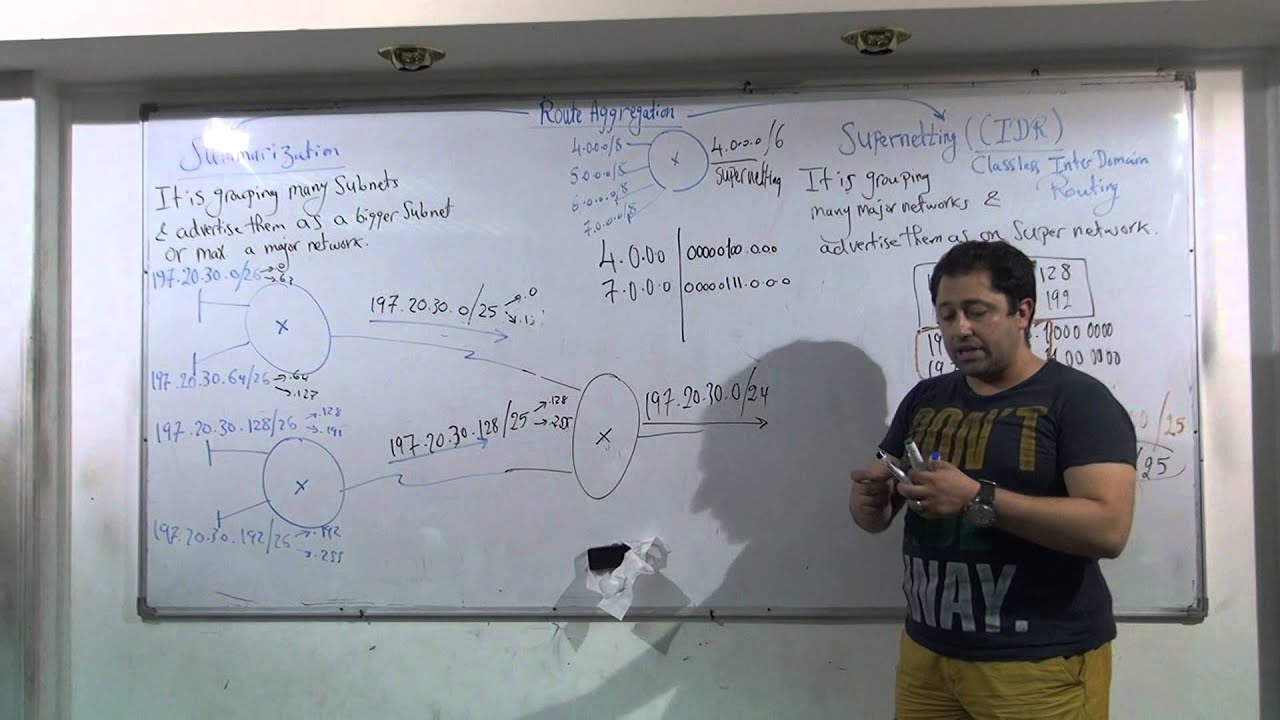 Route Aggregation
Summarization
It is grouping many Subnets
& advertise them as a bigger Subnet
or max a major network.
197.20.30.0/26 .0
.63
197.20.30.64/26 .64
.127
197.20.30.128/26 .128
.191
197.20.30.192/26 .192
.255
197.20.30.0/25 .0
197.20.30.128/25 .128
.255
197.20.30.0/24
4.0.0.0/8
5.0.0.0/8
6.0.0.0/8
7.0.0.0/8
4.0.0.0/6
supernetting
4.0.0.0 00000100.0.0.0
7.0.0.0 00000111.0.0.0
Supernetting (CIDR)
Classless Inter Domain
Routing
It is grouping
many major networks &
advertise them as on Super network.
128
192
0000 0000
00 0000
/25
25
DON'T
AWAY.